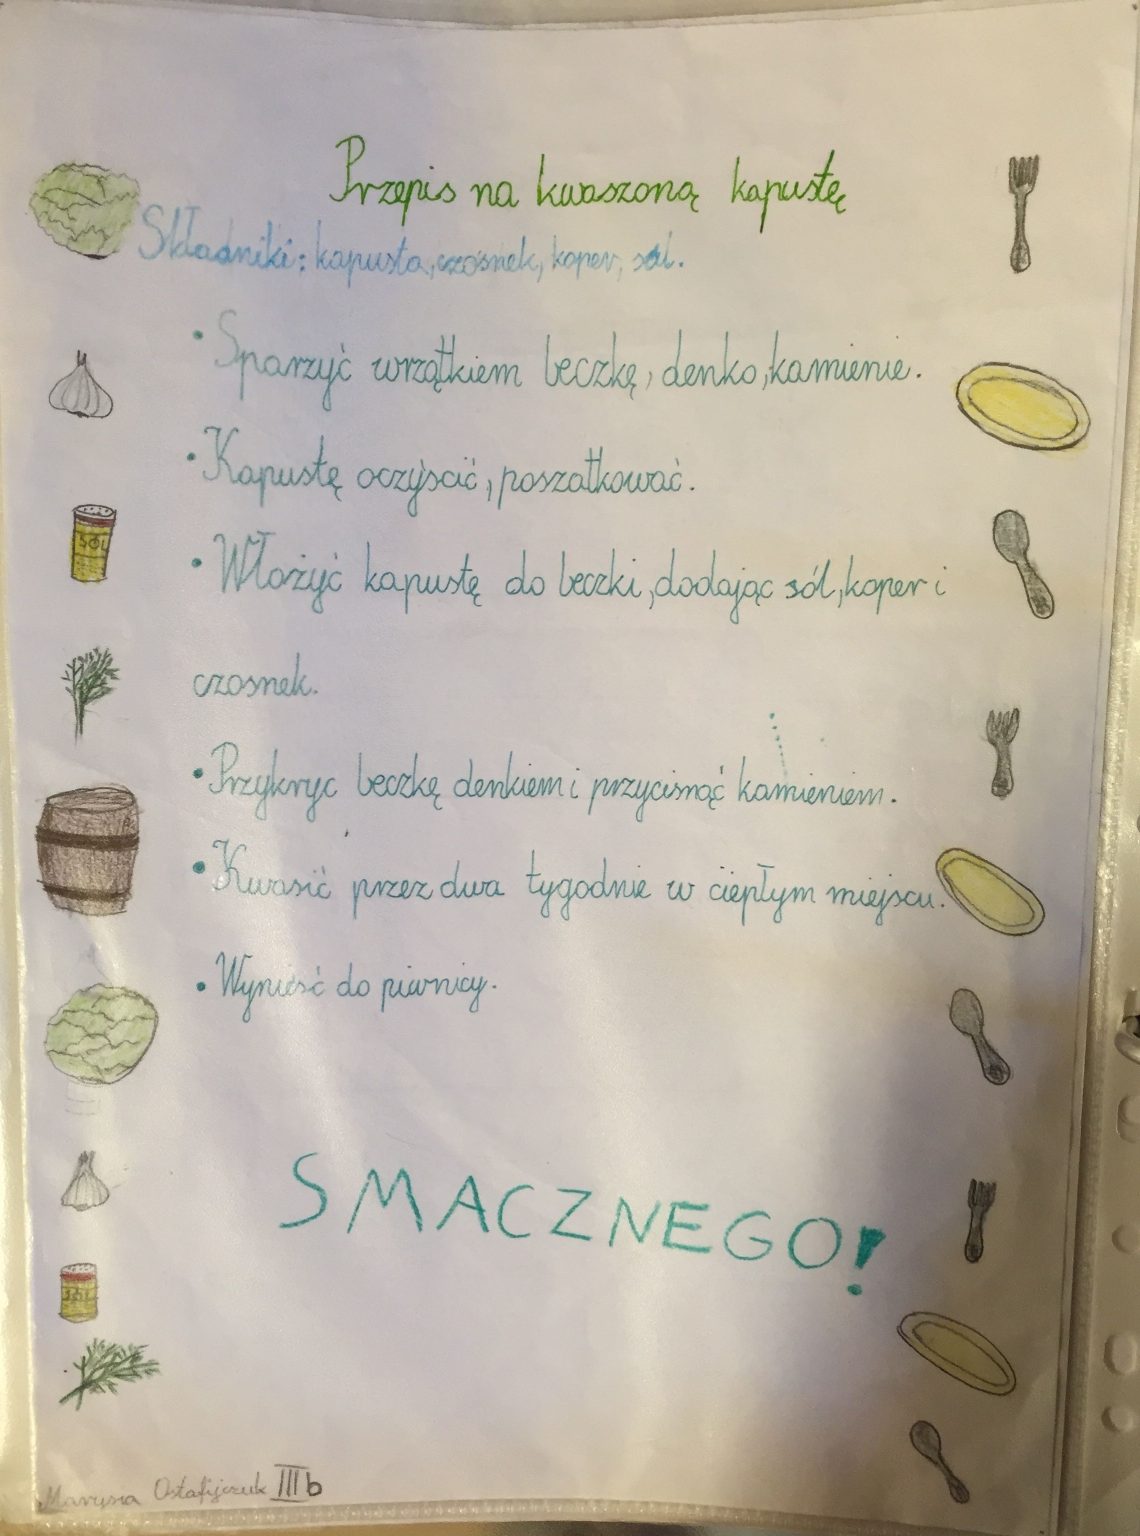 Przepis na kwaszoną kapustę
Składniki: kapusta, czosnek, koper, sól.
• Sparzyć wrzątkiem beczkę, denko, kamienie.
• Kapustę oczyścić, poszatkować.
• Włożyć kapustę do beczki, dodając sól, koper i
czosnek.
• Przykryc beczkę denkiem i przycisnąć kamieniem.
• Kwasić przez dwa tygodnie w ciepłym miejscu.
• Wynieść do piwnicy.
SÓL
SMACZNEGO!
SÓL
Marysia Ostafijczuk III b